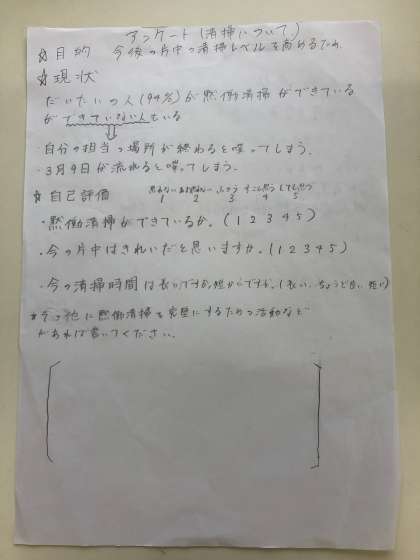 アンケート(清掃について)
☆目的 今後の片中の清掃レベルを高めるため
☆現状
だいたいの人(94%)が黙働清掃ができている
ができていない人もいる
・自分の担当の場所が終わると喋ってしまう.
・3月9日が流れると喋ってしまう.
☆自己評価 思わない あまり思わない ふつう すこし思う とても思う
1 2 3 4 5
・黙働清掃ができているか.(1 2 3 4 5)
・今の片中はきれいだと思いますか.(1 2 3 4 5)
・今の清掃時間は長いですか短いですか.(長い、ちょうど良い、短い)
その他に黙働清掃を完璧にするための活動など
があれば書いてください.